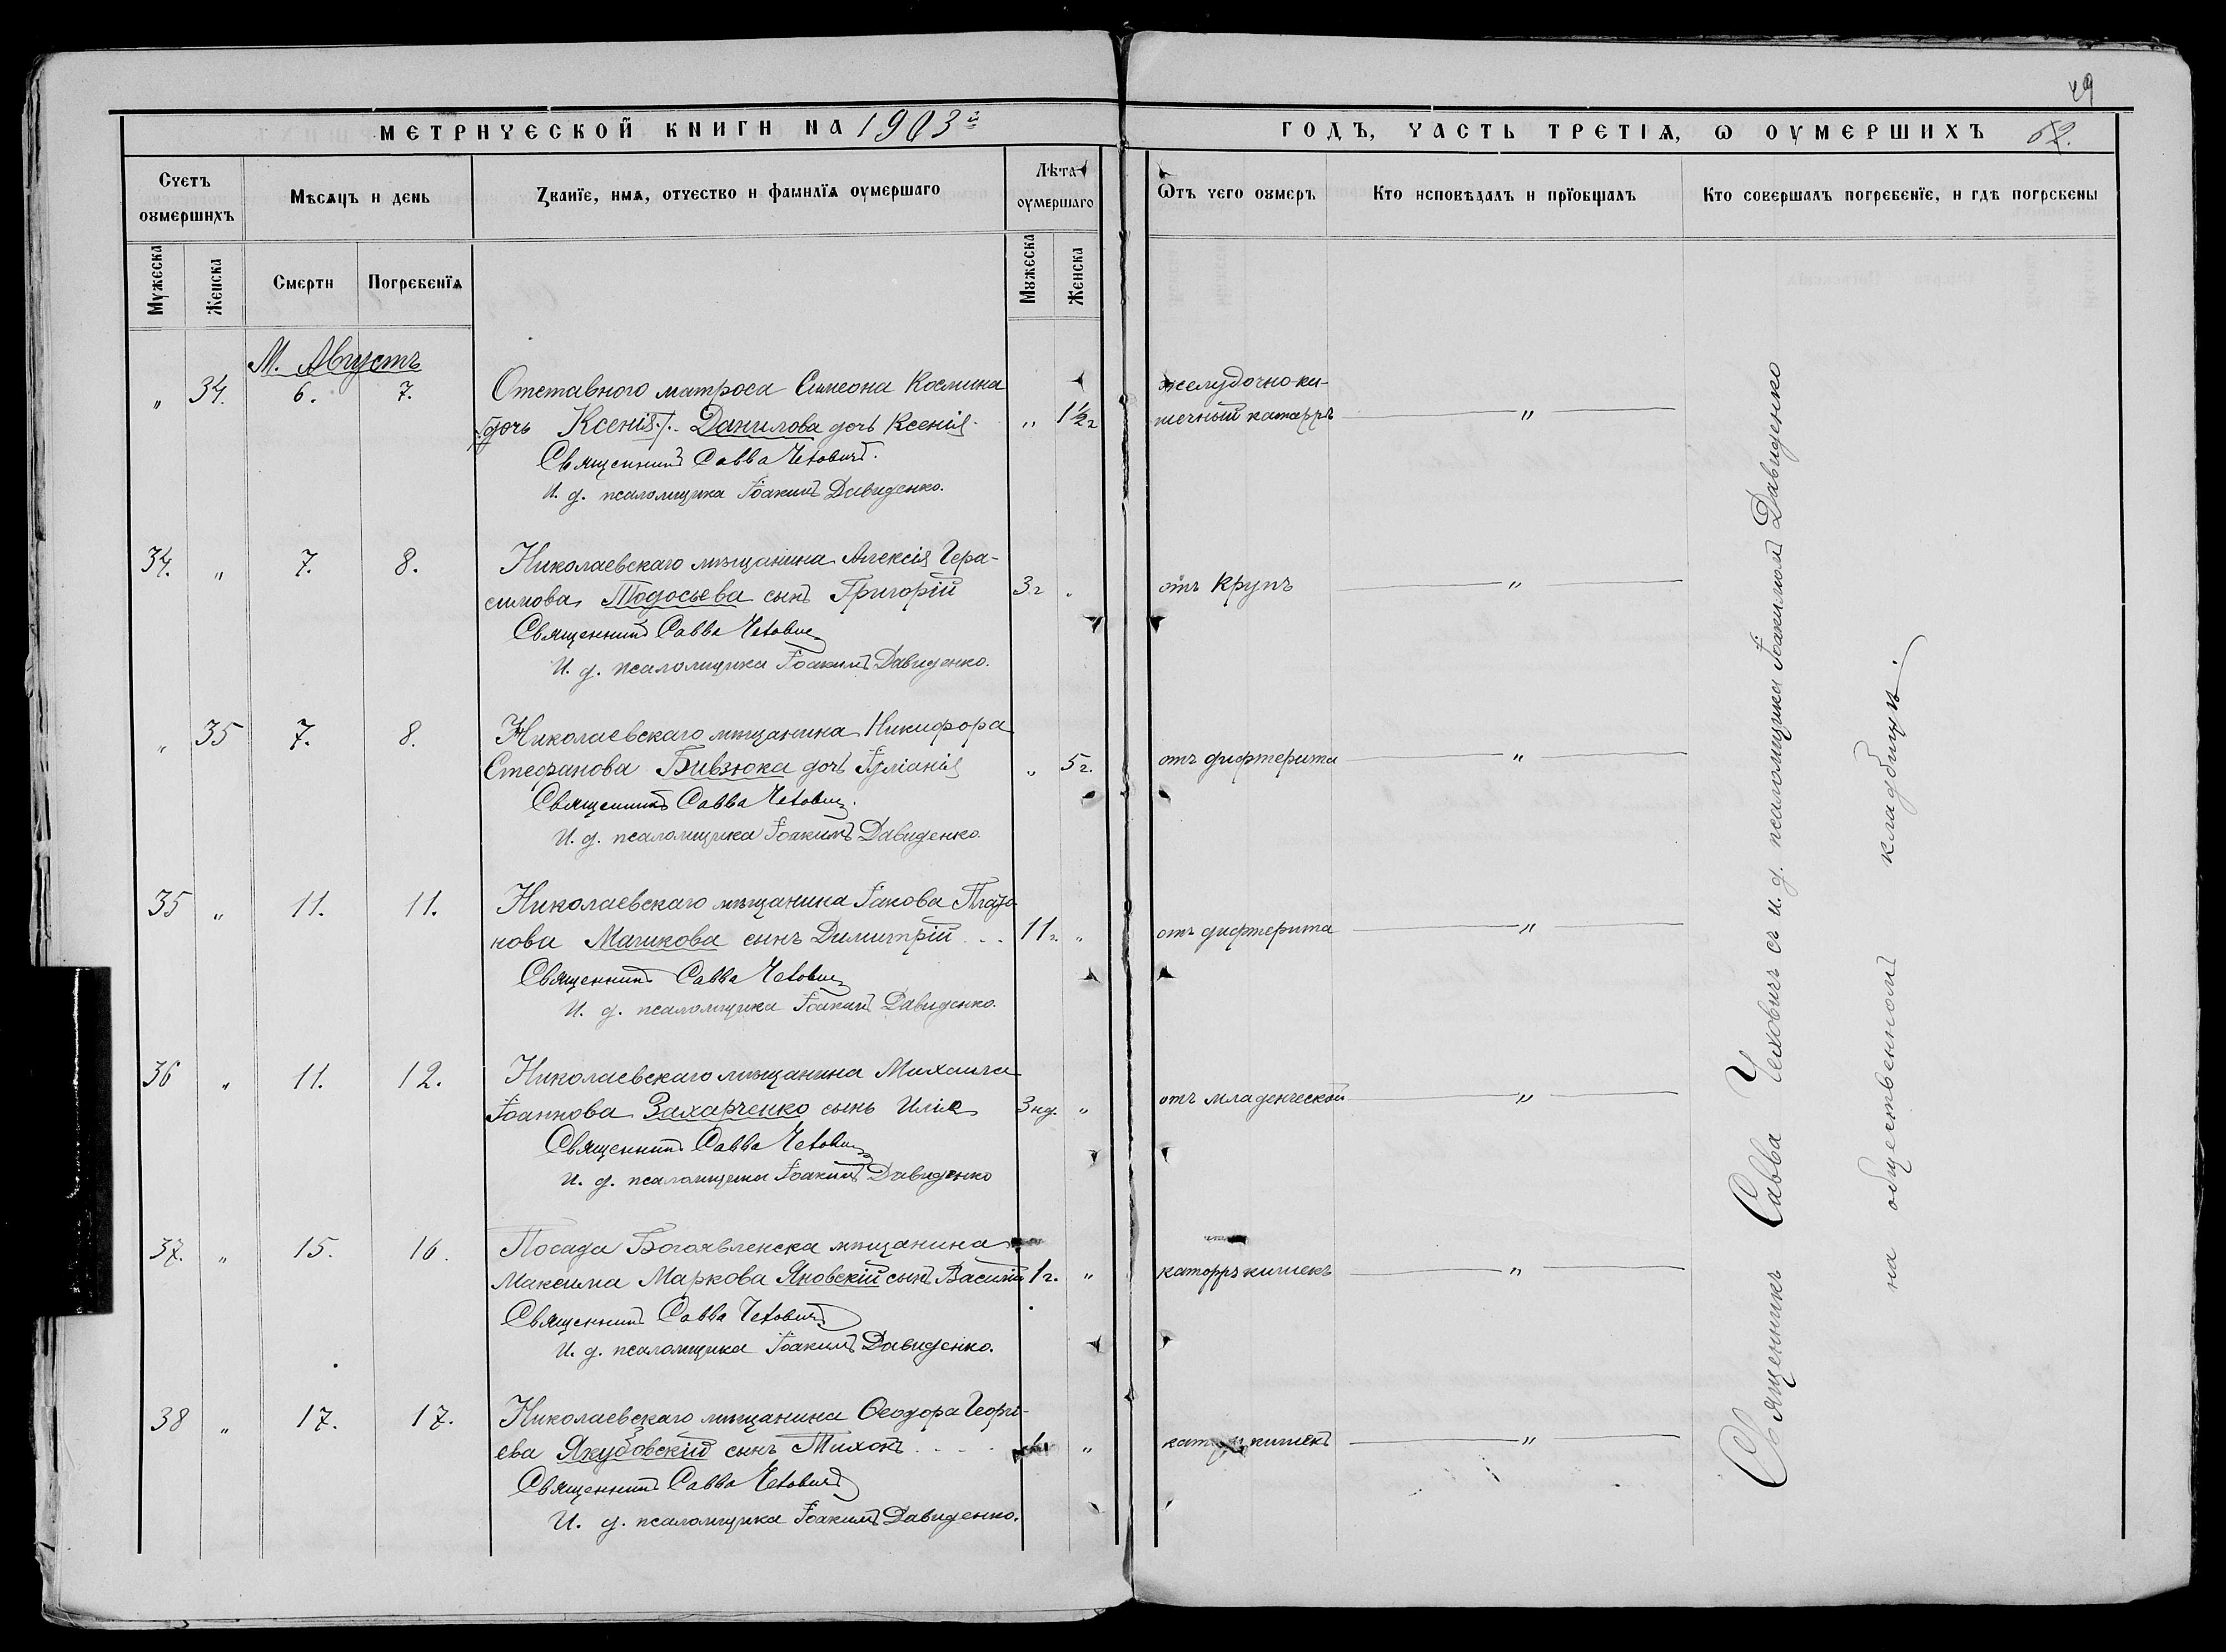 49
МЕТРИЧЕСКОЙ КНИГИ НА 1903й
ГОДЪ, ЧАСТЬ ТРЕТІѦ, Ѡ ОУМЕРШИХЪ 52.
Счетъ оумершихъ
Мѣсѧцъ и день
Званїе, имѧ, отчество и фамилїѧ оумершаго
Лѣта оумершаго
Ѿтъ чего оумеръ
Кто исповѣдалъ и прїобщалъ
Кто совершалъ погребенїе, и гдѣ погребены
Мужеска
Женска
Смерти
Погребенїѧ
Мужеска
Женска
М. Августъ
" 34. 6. 7. Отставного матроса Симеона Космина желудочно-ки-
дочь Ксенія. Данилова дочь Ксенія " 1½ г шечный катарръ "
Священникъ Савва Чеховичъ.
И. д. псаломщика Іоакимъ Давиденко.
34. " 7. 8. Николаевскаго мѣщанина Алексія Гера-
симова Тодосьева сынъ Григорій 3 г " отъ крупъ "
Священникъ Савва Чеховичъ
И. д. псаломщика Іоакимъ Давиденко.
" 35 7. 8. Николаевскаго мѣщанина Никифора
Стефанова Бивзюка дочь Іуліанія " 5 г. отъ дифтерита "
Священникъ Савва Чеховичъ.
И. д. псаломщика Іоакимъ Давиденко.
35 " 11. 11. Николаевскаго мѣщанина Іакова Плато-
нова Машкова сынъ Димитрій 11 г. " отъ дифтерита "
Священникъ Савва Чеховичъ
И. д. псаломщика Іоакимъ Давиденко.
36 " 11. 12. Николаевскаго мѣщанина Михаила
Іоаннова Захарченко сынъ Илія 3 нд. " отъ младенческой "
Священникъ Савва Чеховичъ
И. д. псаломщика Іоакимъ Давиденко
37. " 15. 16. Посада Богоявленска мѣщанина
Максима Маркова Яновскій сынъ Василій 1 г. " каторръ кишекъ "
Священникъ Савва Чеховичъ
И. д. псаломщика Іоакимъ Давиденко.
38 " 17. 17. Николаевскаго мѣщанина Ѳеодора Георгі-
ева Якубовскій сынъ Тихонъ " кишекъ "
Священникъ Савва Чеховичъ
И. д. псаломщика Іоакимъ Давиденко.
Священникъ Савва Чеховичъ съ и. д. псаломщика Іоакимомъ Давиденко
на общественномъ кладбищѣ.